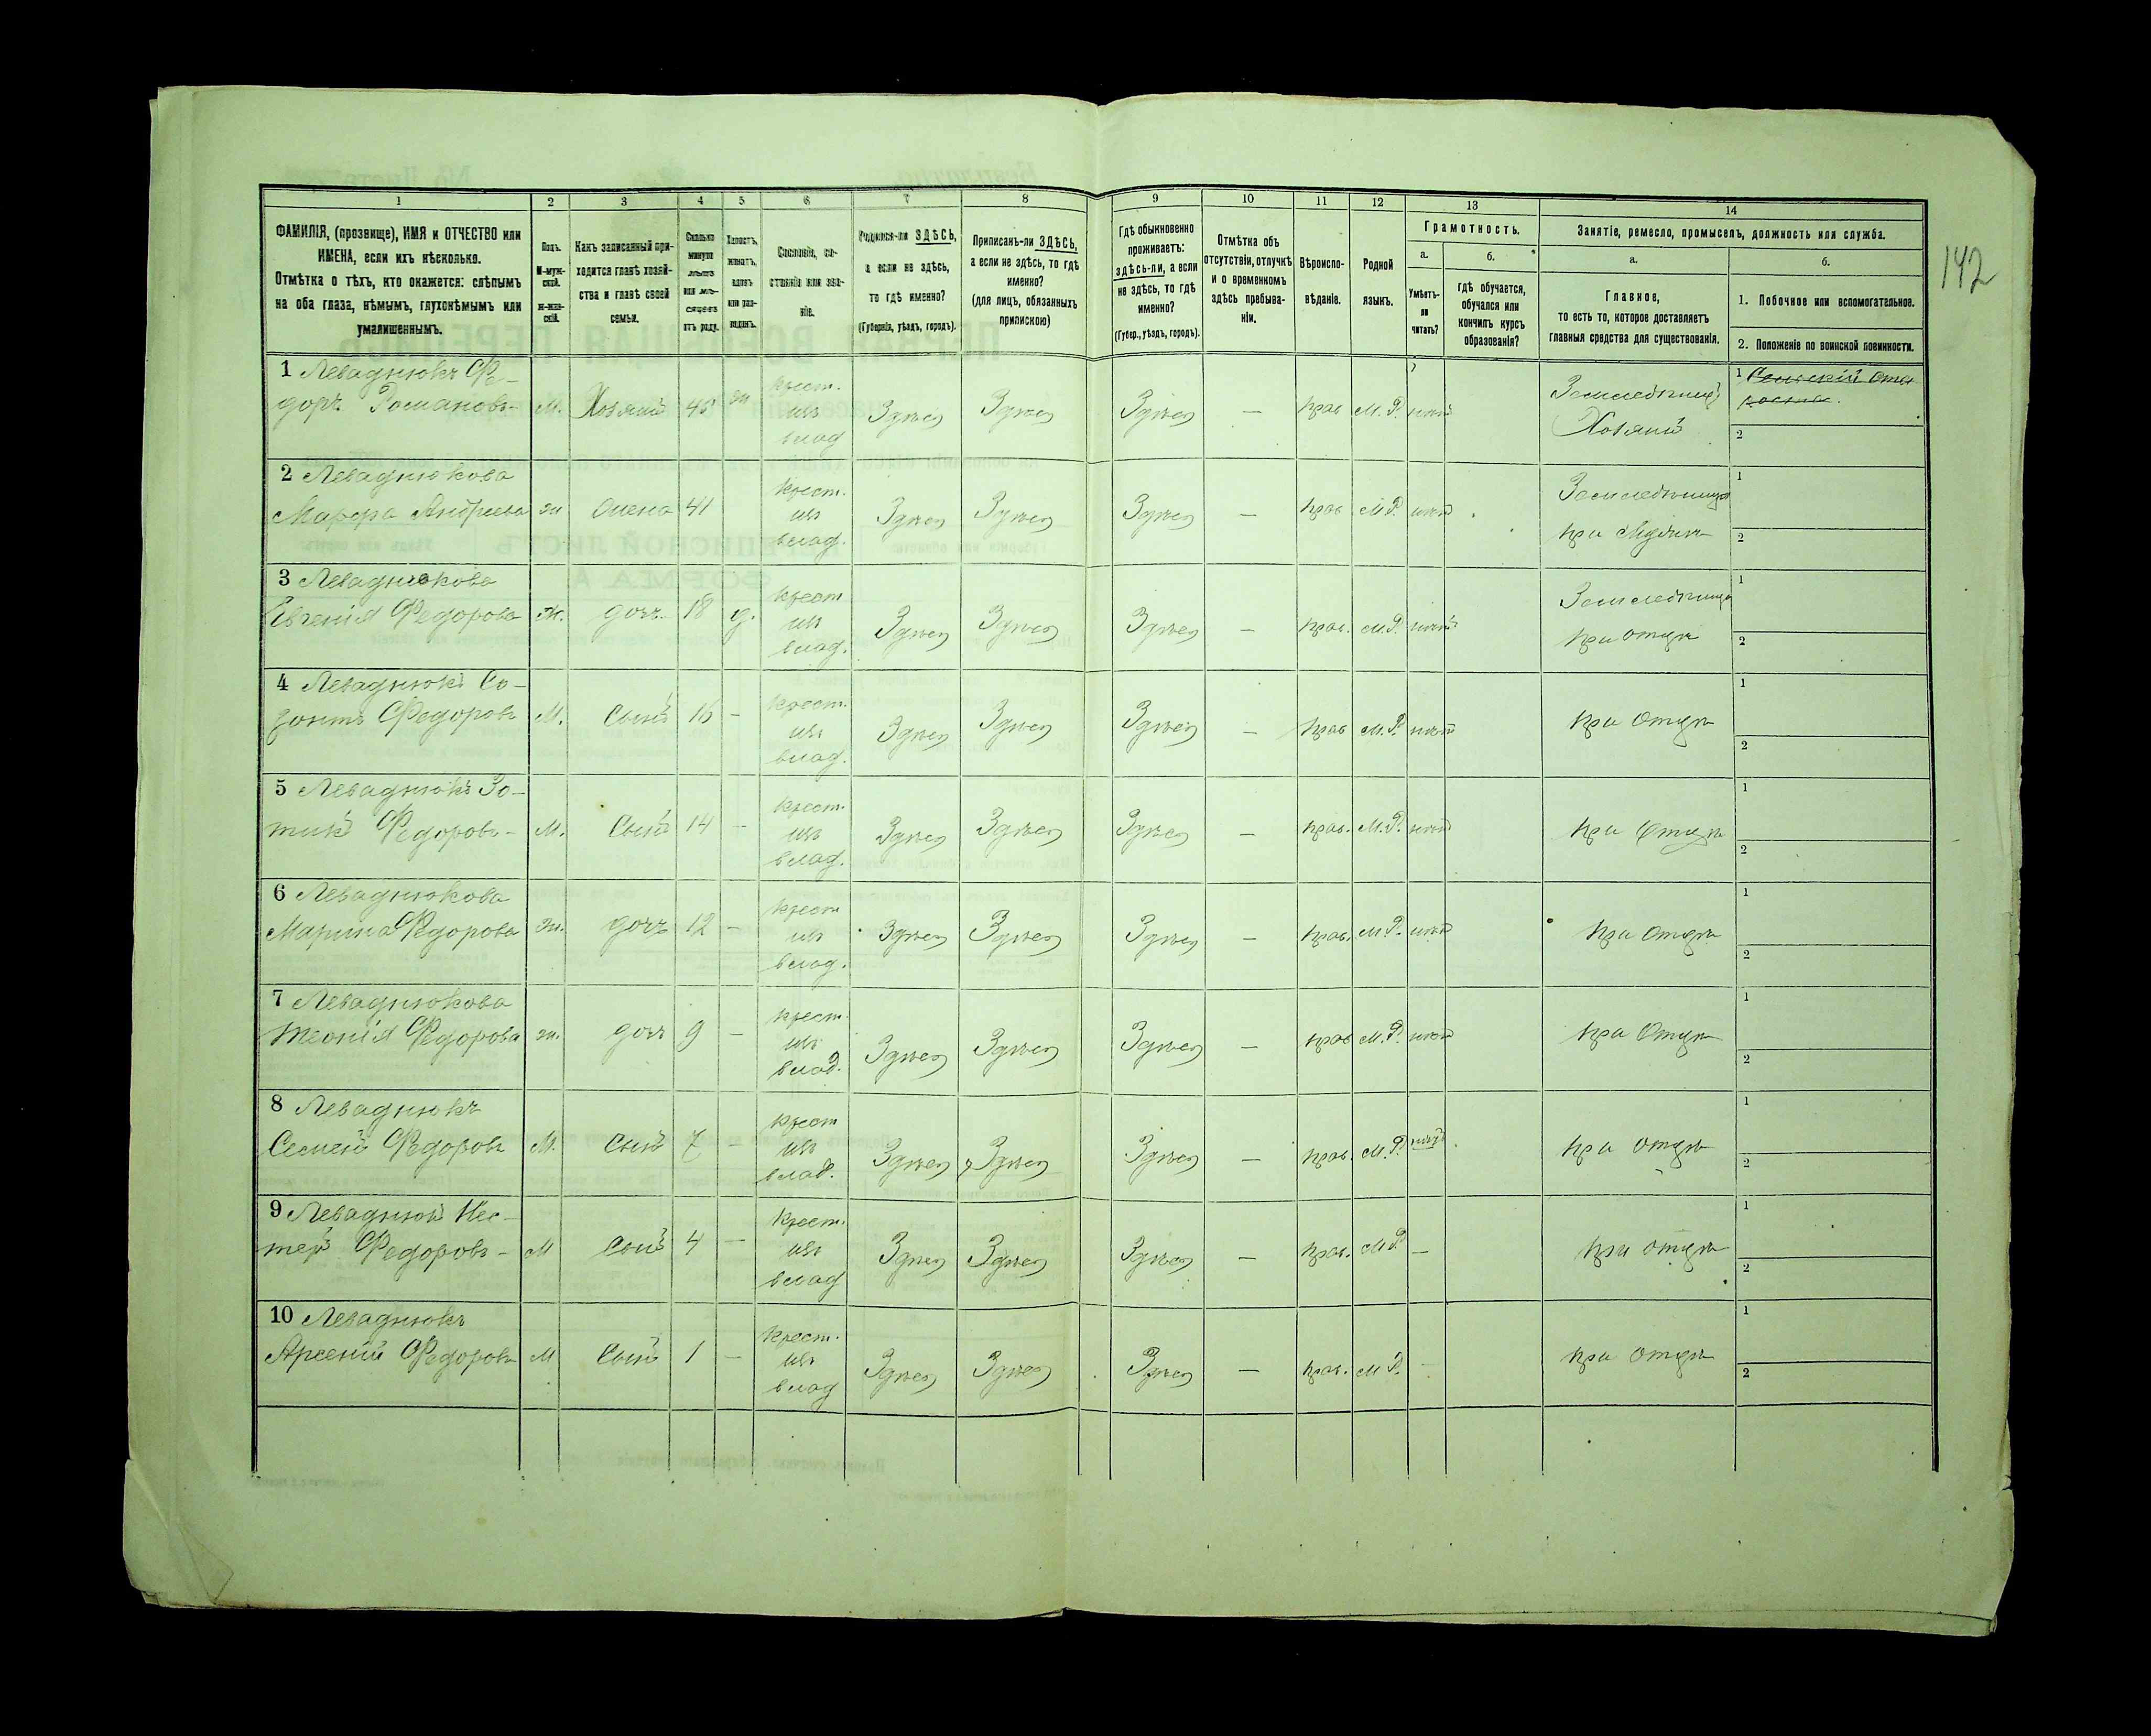 142
1 2 3 4 5 6 7 8 9 10 11 12 13 14
ФАМИЛІЯ, (прозвище), ИМЯ и ОТЧЕСТВО или
ИМЕНА, если ихъ нѣсколько.
Отмѣтка о тѣхъ, кто окажется: слѣпымъ
на оба глаза, нѣмымъ, глухонѣмымъ или
умалишеннымъ.
Полъ.
М-муж-
ской.
ж-жен-
скій.
Какъ записанный при-
ходится главѣ хозяй-
ства и главѣ своей
семьи.
Сколько
минуло
лѣтъ
или мѣ-
сяцевъ
отъ роду.
Холостъ,
женатъ,
вдовъ
или раз-
веденъ.
Сословіе, со-
стояніе или зва-
ніе.
Родился-ли ЗДѢСЬ,
а если не здѣсь,
то гдѣ именно?
(Губернія, уѣздъ, городъ).
Приписанъ-ли ЗДѢСЬ,
а если не здѣсь, то гдѣ
именно?
(для лицъ, обязанныхъ
припискою)
Гдѣ обыкновенно
проживаетъ:
здѣсь-ли, а если
не здѣсь, то гдѣ
именно?
(Губер., уѣздъ, городъ).
Отмѣтка объ
отсутствіи, отлучкѣ
и о временномъ
здѣсь пребыва-
ніи.
Вѣроиспо-
вѣданіе.
Родной
языкъ.
Грамотность.
а.
Умѣетъ-
ли
читать?
б.
гдѣ обучается,
обучался или
кончилъ курсъ
образованія?
Занятіе, ремесло, промыселъ, должность или служба.
а.
Главное,
то есть то, которое доставляетъ
главныя средства для существованія.
б.
1. Побочное или вспомогательное.
2. Положеніе по воинской повинности.
1 Леваднюкъ Фе-
доръ Романовъ- М. Хозяинъ 45 ж Крест. изъ влад Здѣсь Здѣсь Здѣсь — прав М.Р. нѣтъ Хозяинъ 1 2
2 Леваднюкова
Марфа Андреева ж жена 41 Крест. изъ влад. Здѣсь Здѣсь Здѣсь — прав М.Р. нѣтъ при мужѣ 1 2
3 Леваднюкова
Евгенія Федорова ж. дочь 18 д. Крест изъ влад. Здѣсь Здѣсь Здѣсь — прав. М.Р. нѣтъ при отцѣ 1 2
4 Леваднюкъ Со-
зонтъ Федоровъ М. Сынъ 16 — Крест. изъ влад. Здѣсь Здѣсь Здѣсь — прав М.Р. нѣтъ при отцѣ 1 2
5 Леваднюкъ Зо-
тикъ Федоровъ- М. Сынъ 14 — Крест. изъ влад. Здѣсь Здѣсь Здѣсь — прав. М.Р. нѣтъ при отцѣ 1 2
6 Леваднюкова
Марина Федорова ж. дочь 12 — Крест изъ влад. Здѣсь Здѣсь Здѣсь — прав. М.Р. нѣтъ при отцѣ 1 2
7 Леваднюкова
Федорова ж. дочь 9 — Крест. изъ влад. Здѣсь Здѣсь Здѣсь — прав М.Р. нѣтъ при отцѣ 1 2
8 Леваднюкъ
Семенъ Федоровъ М. Сынъ 7 — Крест изъ влад. Здѣсь Здѣсь Здѣсь — прав. М.Р. нѣтъ при отцѣ 1 2
9 Леваднюкъ Нес-
теръ Федоровъ- М Сынъ 4 — Крест. изъ влад Здѣсь Здѣсь Здѣсь — прав. М.Р — при отцѣ 1 2
10 Леваднюкъ
Арсеній Федоровъ М Сынъ 1 — Крест. изъ влад Здѣсь Здѣсь Здѣсь — прав. М.Р. — при отцѣ 1 2